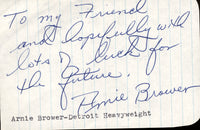 To my Friend
and hopefully with
lots of luck for
the future.
Arnie Brower
Arnie Brower-Detroit Heavyweight